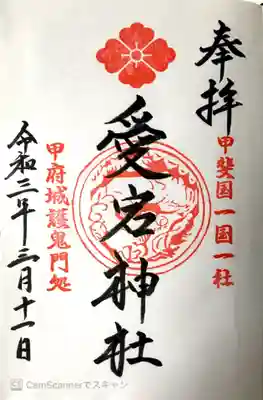 奉拝
甲斐国一国一社
愛宕神社
甲府城護鬼門処
令和三年三月十一日
CamScannerでスキャン